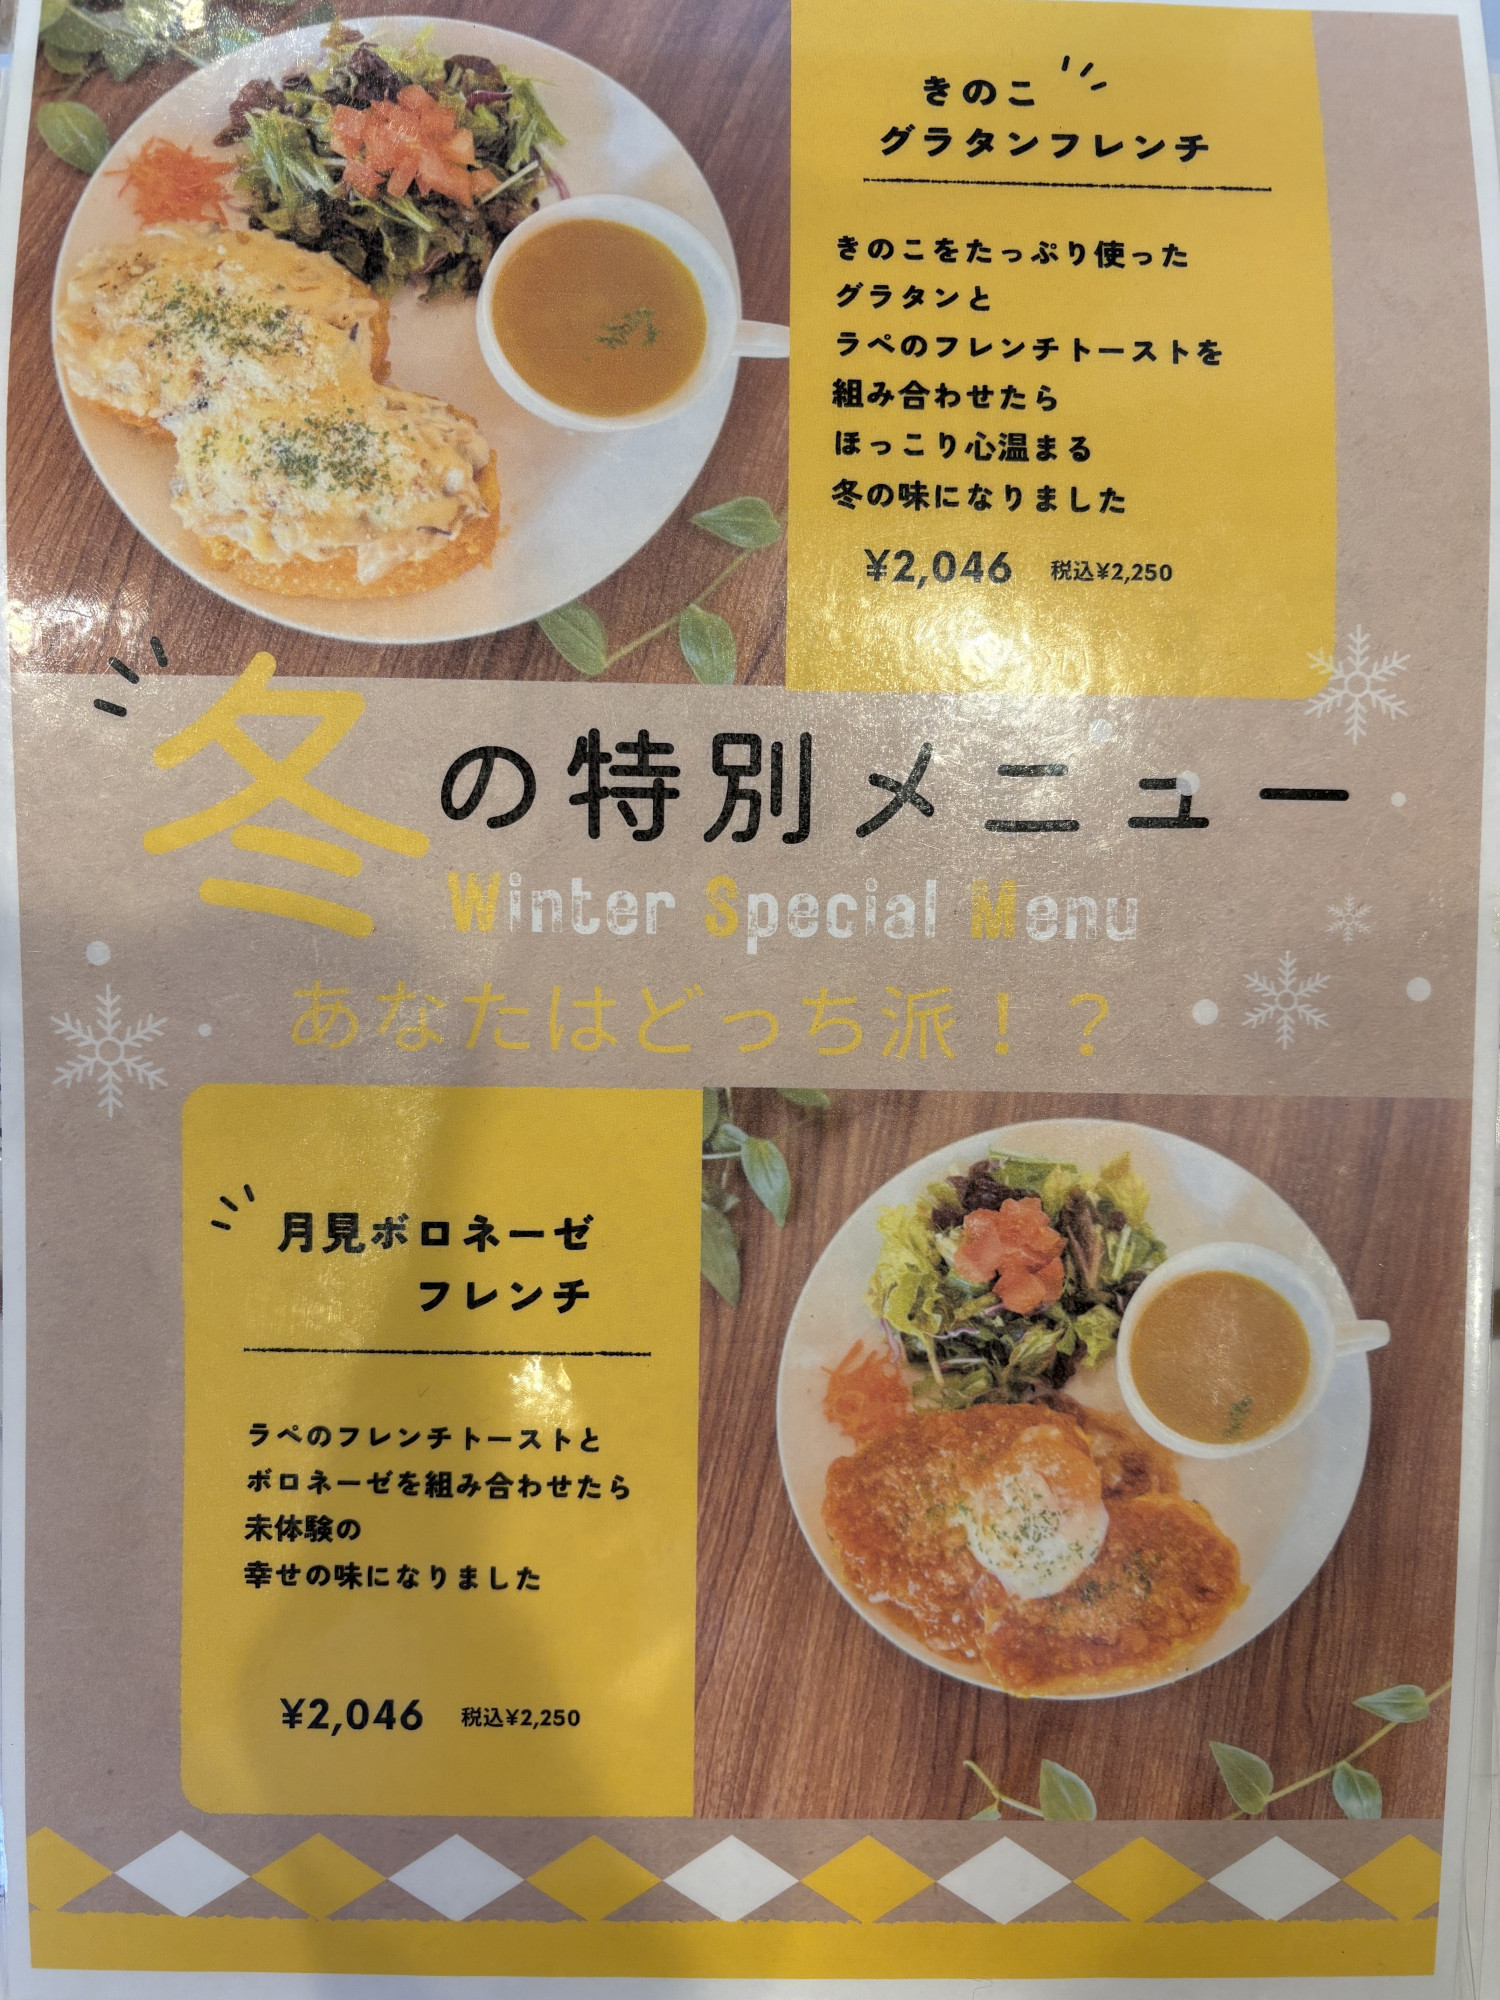 きのこ
グラタンフレンチ
きのこをたっぷり使った
グラタンと
ラペのフレンチトーストを
組み合わせたら
ほっこり心温まる
冬の味になりました
¥2,046 税込¥2,250
冬の特別メニュー
Winter Special Menu
あなたはどっち派！？
月見ボロネーゼ
フレンチ
ラペのフレンチトーストと
ボロネーゼを組み合わせたら
未体験の
幸せの味になりました
¥2,046 税込¥2,250